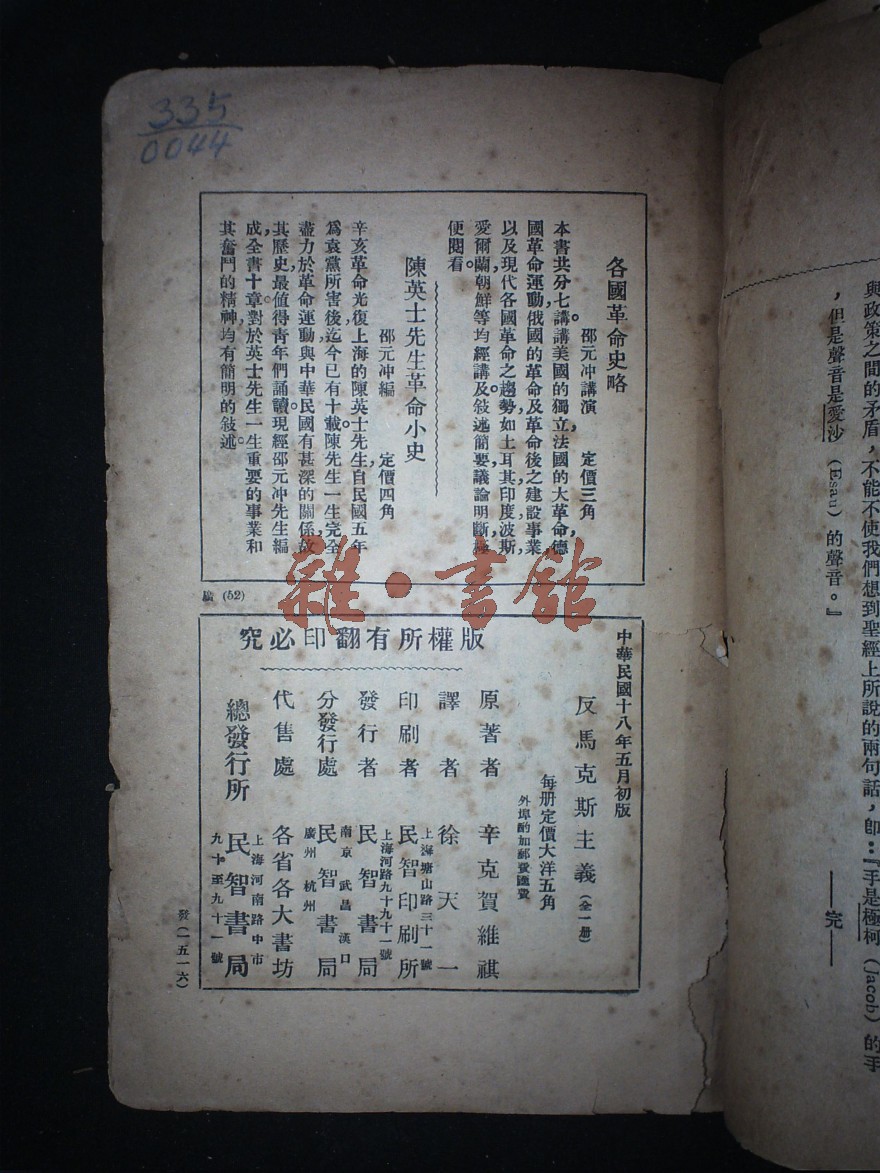 335
0044
各國革命史略
邵元冲講演 定價三角
本書共分七講講美國的獨立法國的大革命德
國革命運動俄國的革命及革命後之建設事業
以及現代各國革命之趨勢如土耳其印度波斯
愛爾蘭朝鮮等均經講及敍述簡要議論明斷極
便閱看。
陳英士先生革命小史
邵元冲編 定價四角
辛亥革命光復上海的陳英士先生自民國五年
爲袁黨所害後迄今已有十載。陳先生一生完全
盡力於革命運動與中華民國有甚深的關係故
其歷史最值得靑年們誦讀。現經邵元冲先生編
成全書十章對於英士先生一生重要的事業和
其奮鬥的精神均有簡明的敍述。
廣 (52)
雜·書館
版權所有翻印必究
中華民國十八年五月初版
反馬克斯主義(全一册)
每册定價大洋五角
外埠酌加郵費匯費
原著者 辛克賀維祺
譯者 徐天一
印刷者 上海塘山路三十一號 民智印刷所
發行者 上海河路九十九十一號 民智書局
分發行處 南京 武昌 漢口 民智書局 廣州 杭州
代售處 各省各大書坊
總發行所 上海河南路中市 民智書局 九十至九十一號
發(一五一六)
與政策之間的矛盾,不能不使我們想到聖經上所說的兩句話,卽:『手是極柯(Jacob)的手
,但是聲音是愛沙(Esau)的聲音。』
——完——